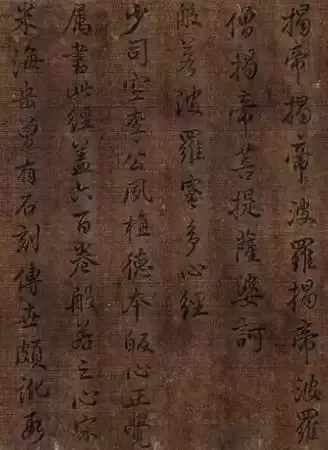 揭帝揭帝波羅揭帝波羅
僧揭帝菩提薩婆訶
般若波羅蜜多心經
少司空李公夙植德本皈心正覺
属書此經蓋六百卷般若之心宗
米海岳曾有石刻傳世頗訛